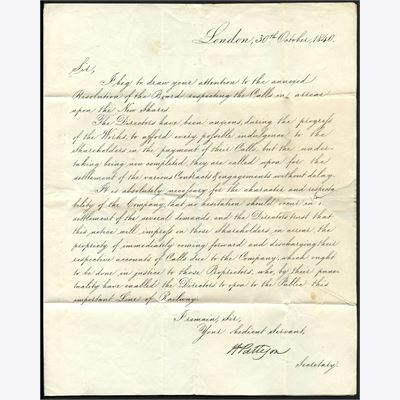 London, 30th October, 1840.
Sir,
I beg to draw your attention to the annexed
Resolution of the Board, respecting the Calls in arrear
upon the New Shares.
The Directors have been anxious, during the progress
of the Works, to afford every possible indulgence to the
Shareholders in the payment of their Calls, but the under-
taking being now completed, they are called upon for the
settlement of the various Contracts & engagements without delay.
It is absolutely necessary for the character and respecta-
bility of the Company, that no hesitation should occur in a
settlement of the several demands, and the Directors trust that
this notice will impress on those Shareholders in arrear the
propriety of immediately coming forward and discharging their
respective accounts of Calls due to the Company, which ought
to be done in justice to those Proprietors, who, by their punc-
tuality have enabled the Directors to open to the Public this
important Line of Railway.
I remain, Sir,
Your obedient Servant,
Secretary.